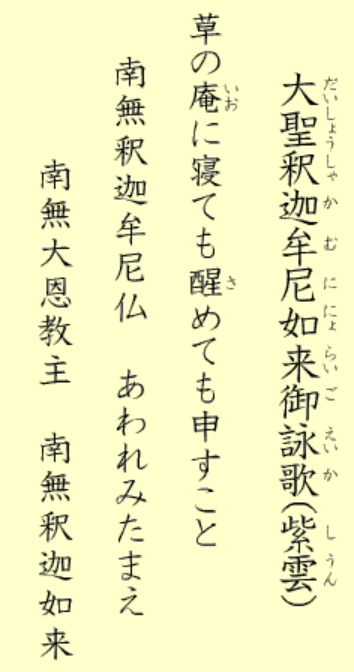 大聖釈迦牟尼如来御詠歌(紫雲)
だいしょうしゃかむににょらいごえいか しうん
草の庵に寝ても醒めても申すこと
いお さ
南無釈迦牟尼仏 あわれみたまえ
南無大恩教主 南無釈迦如来